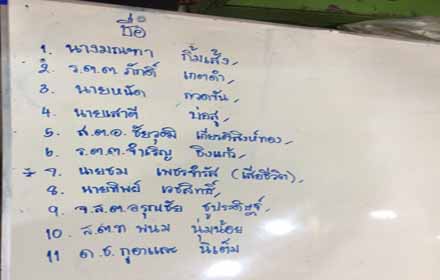 ชื่อ
1. นางมณฑา กิ้มเส้ง
2. ร.ต.ต ภักดิ์ เกตดำ
3. นายหนัด
4. นายเสาดี บ่อสู
5. ส.ต.อ. ชัยวุฒิ เกียรติสิงห์ทอง
6. ร.ต.ต.จำเริญ ชิงแก้ว
7. นายชม เพชรจำรัส (เสียชีวิต)
8. นายทิพย์ เวชสิทธิ์
9. จ.ส.ต.อรุณชัย ชูประดิษฐ์
10. ส.ต.ท พนม นุ่มน้อย
11 ด.ช. นิเต็ม